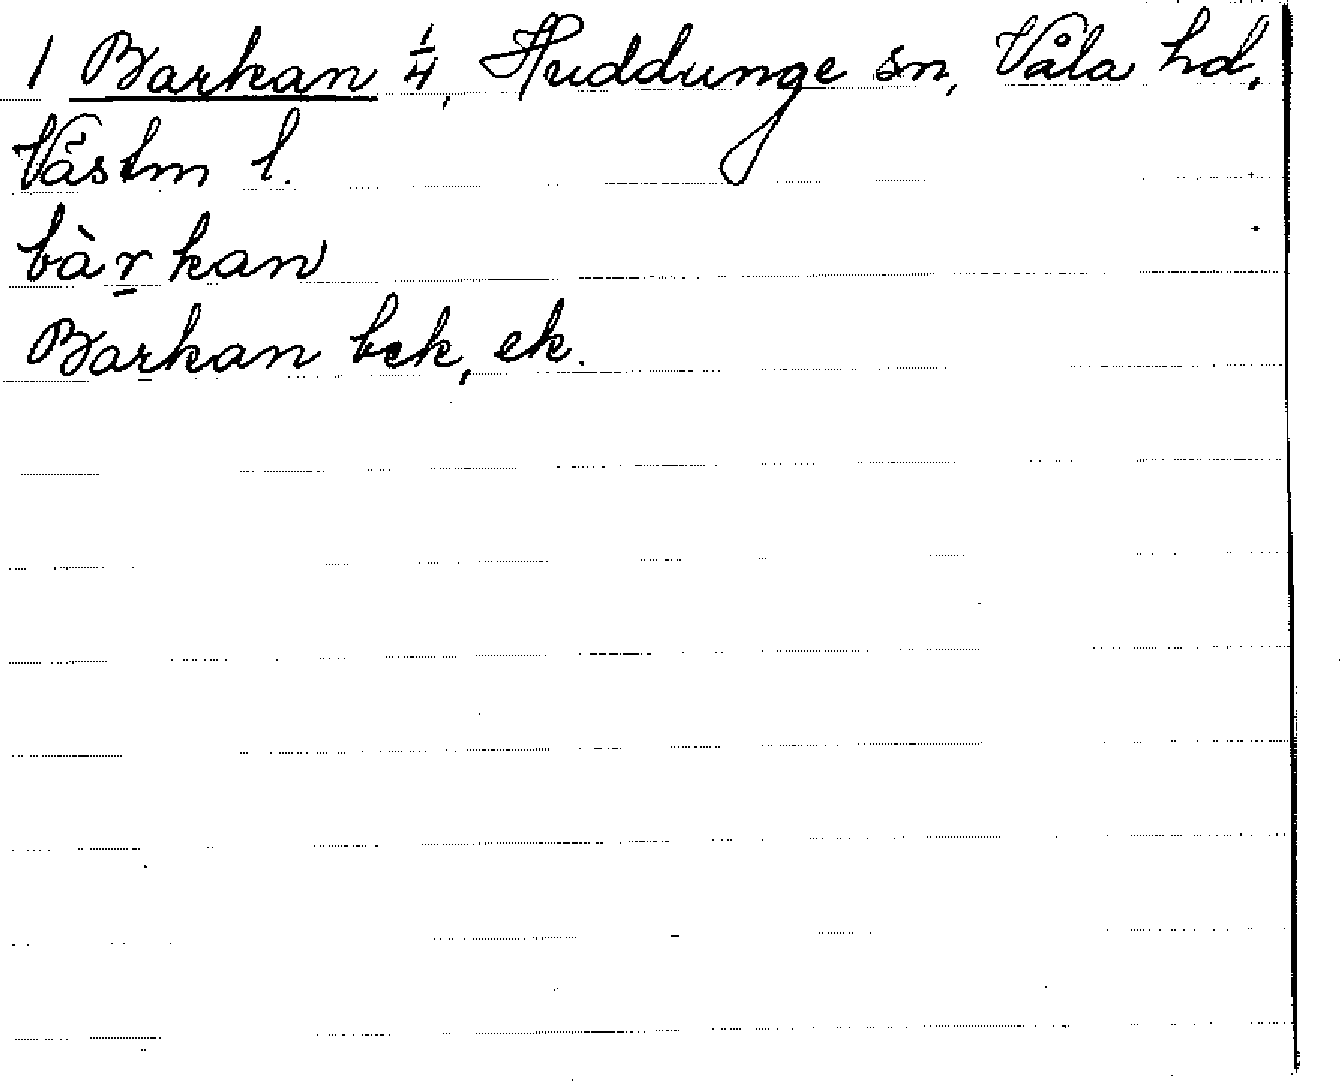 1 Barkan 1/4, Huddunge sn, Våla hd,
Västm l.
bàr̲kan
Barkan bek, ek.